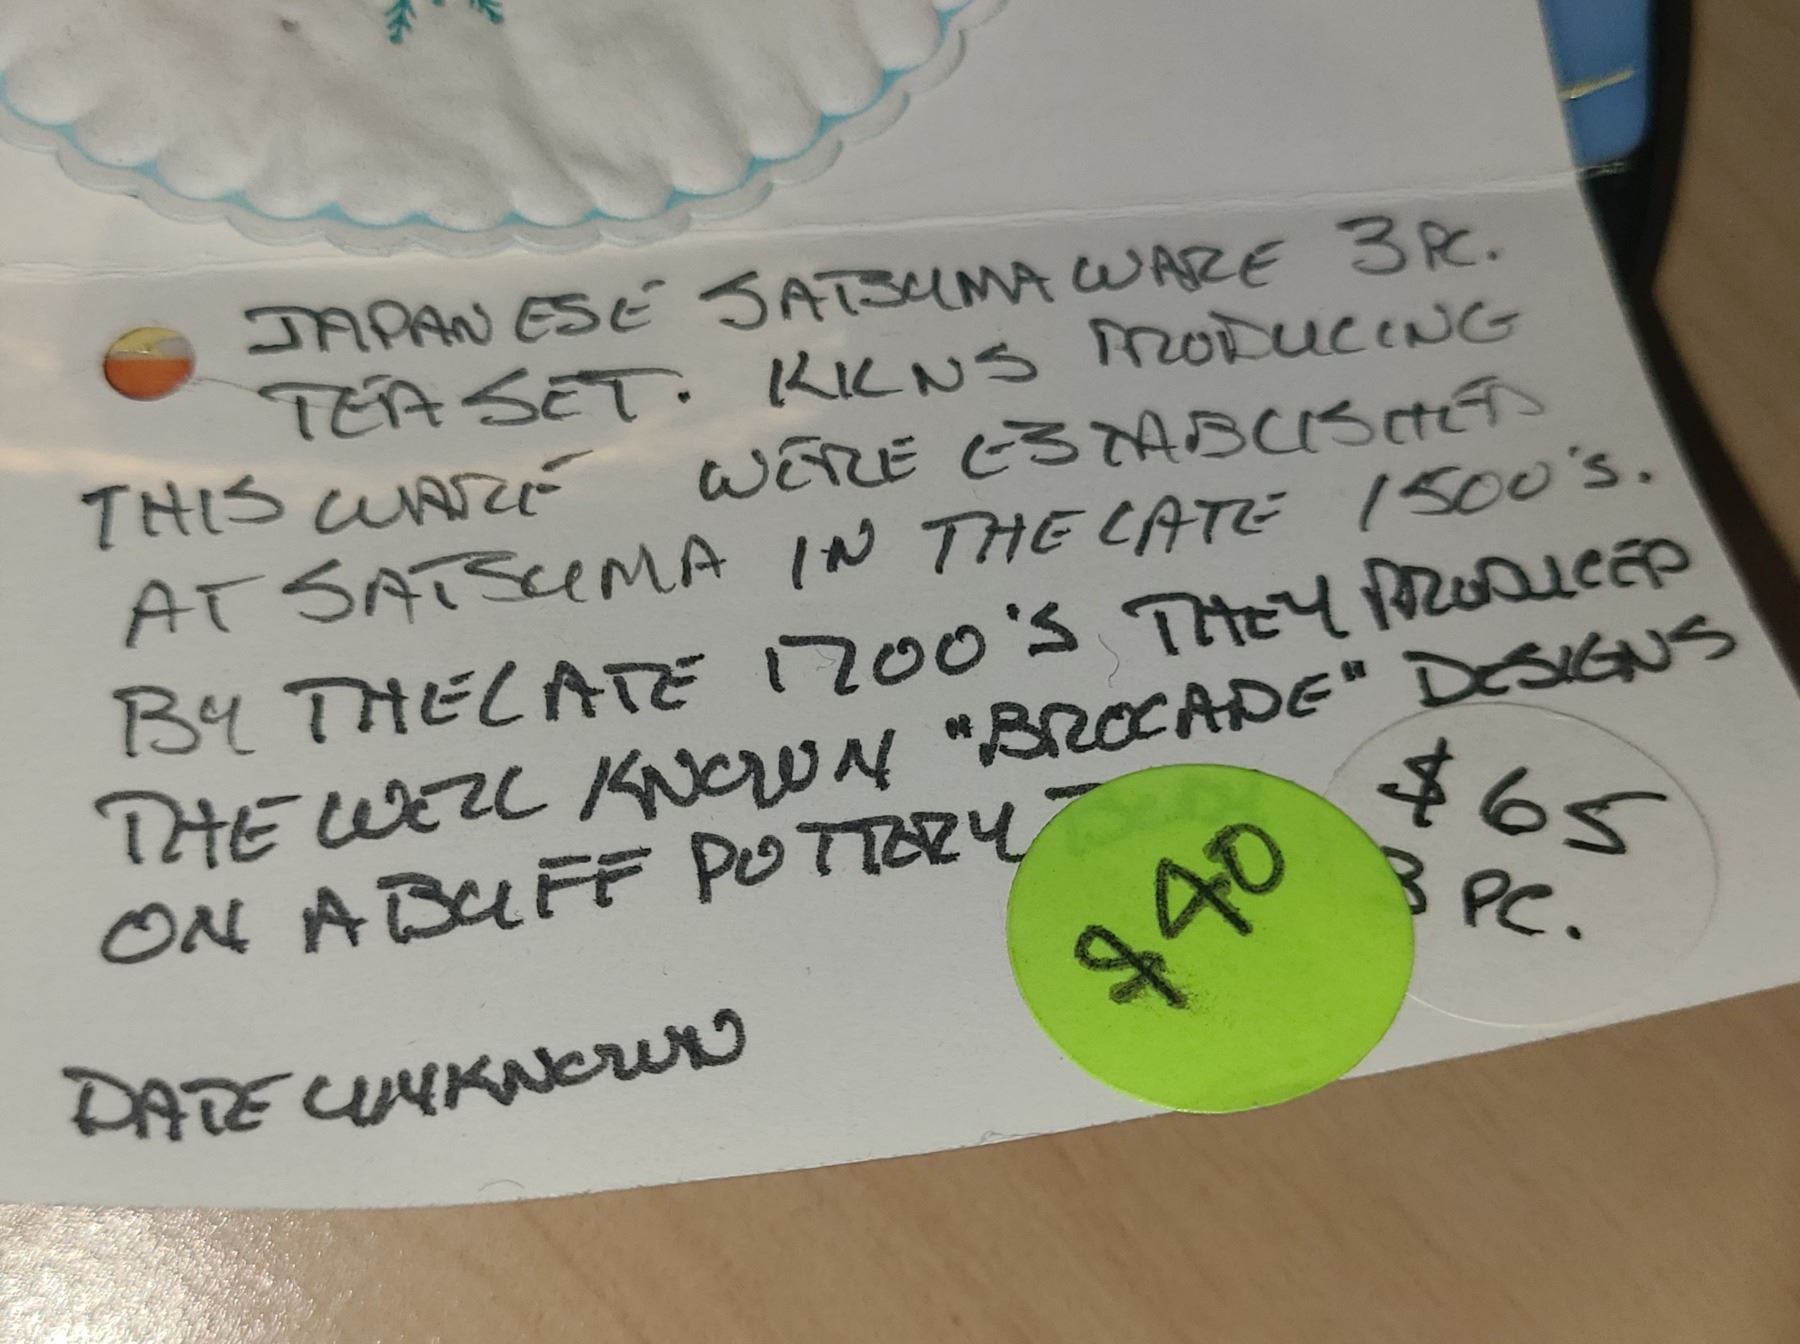 JAPANESE SATSUMA WARE 3 PC.
TEA SET. KILNS PRODUCING
THIS WARE WERE ESTABLISHED
AT SATSUMA IN THE LATE 1500'S.
BY THE LATE 1700'S THEY PRODUCED
THE WELL KNOWN "BROCADE" DESIGNS
ON A BUFF POTTERY
$65
3 PC.
$40
DATE UNKNOWN